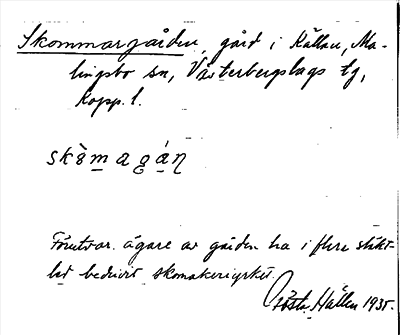 Skommargården, gård i Källan, Ma-
lingsbo sn, Västerbergslags tg,
Kopp. l.
skòmagáṇ
Företrar. ägare av gården ha i flera släkt-
led bedrivit skomakeriyrket.
Gösta Hallén 1935.